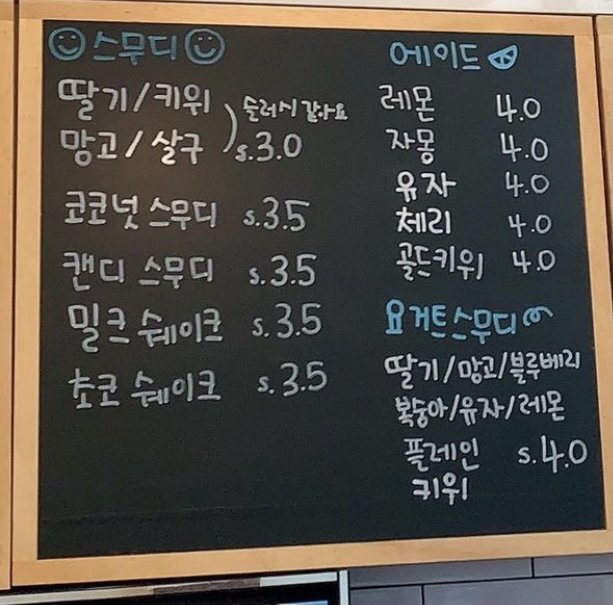 스무디
딸기/키위 슬러시 같아요
망고/살구 s.3.0
코코넛 스무디 s.3.5
캔디 스무디 s.3.5
밀크 쉐이크 s.3.5
초코 쉐이크 s.3.5
에이드
레몬 4.0
자몽 4.0
유자 4.0
체리 4.0
골드키위 4.0
요거트스무디
딸기/망고/블루베리
복숭아/유자/레몬
플레인 s.4.0
키위